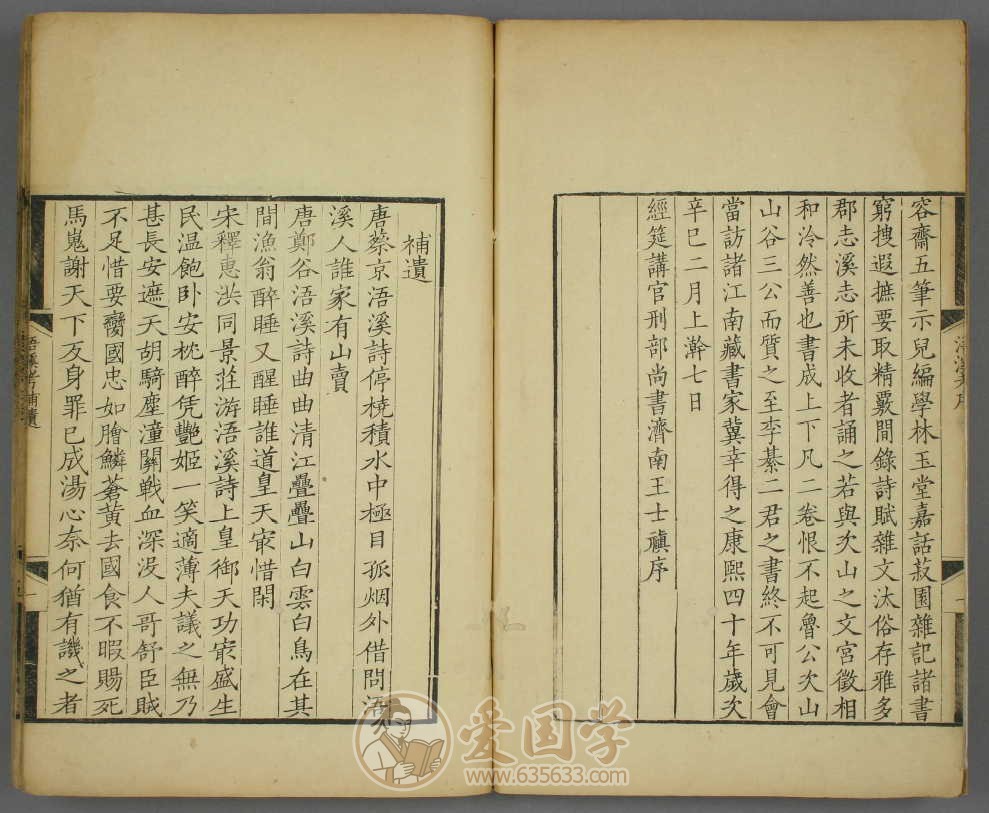 容齋五筆示兒編學林玉堂嘉話菽園雜記諸書
窮搜遐摭要取精覈間錄詩賦雜文汰俗存雅多
郡志溪志所未收者誦之若與次山之文宮徵相
和泠然善也書成上下凡二卷恨不起魯公次山
山谷三公而質之至李綦二君之書終不可見會
當訪諸江南藏書家冀幸得之康熙四十年歲次
辛巳二月上澣七日
經筵講官刑部尚書濟南王士禛序
補遺
唐蔡京浯溪詩停橈積水中極目孤烟外借問浯
溪人誰家有山賣
唐鄭谷浯溪詩曲曲清江疊疊山白雲白鳥在其
間漁翁醉睡又醒睡誰道皇天㝡惜閑
宋釋惠洪同景莊游浯溪詩上皇御天功㝡盛生
民温飽卧安枕醉凭艷姬一笑適薄夫議之無乃
甚長安遮天胡騎塵潼關戰血深没人哥舒臣賊
不足惜要臠國忠如膾鱗蒼黃去國食不暇賜死
馬嵬謝天下反身罪已成湯心奈何猶有譏之者
浯溪考補遺
一
爱国学
www.635633.com